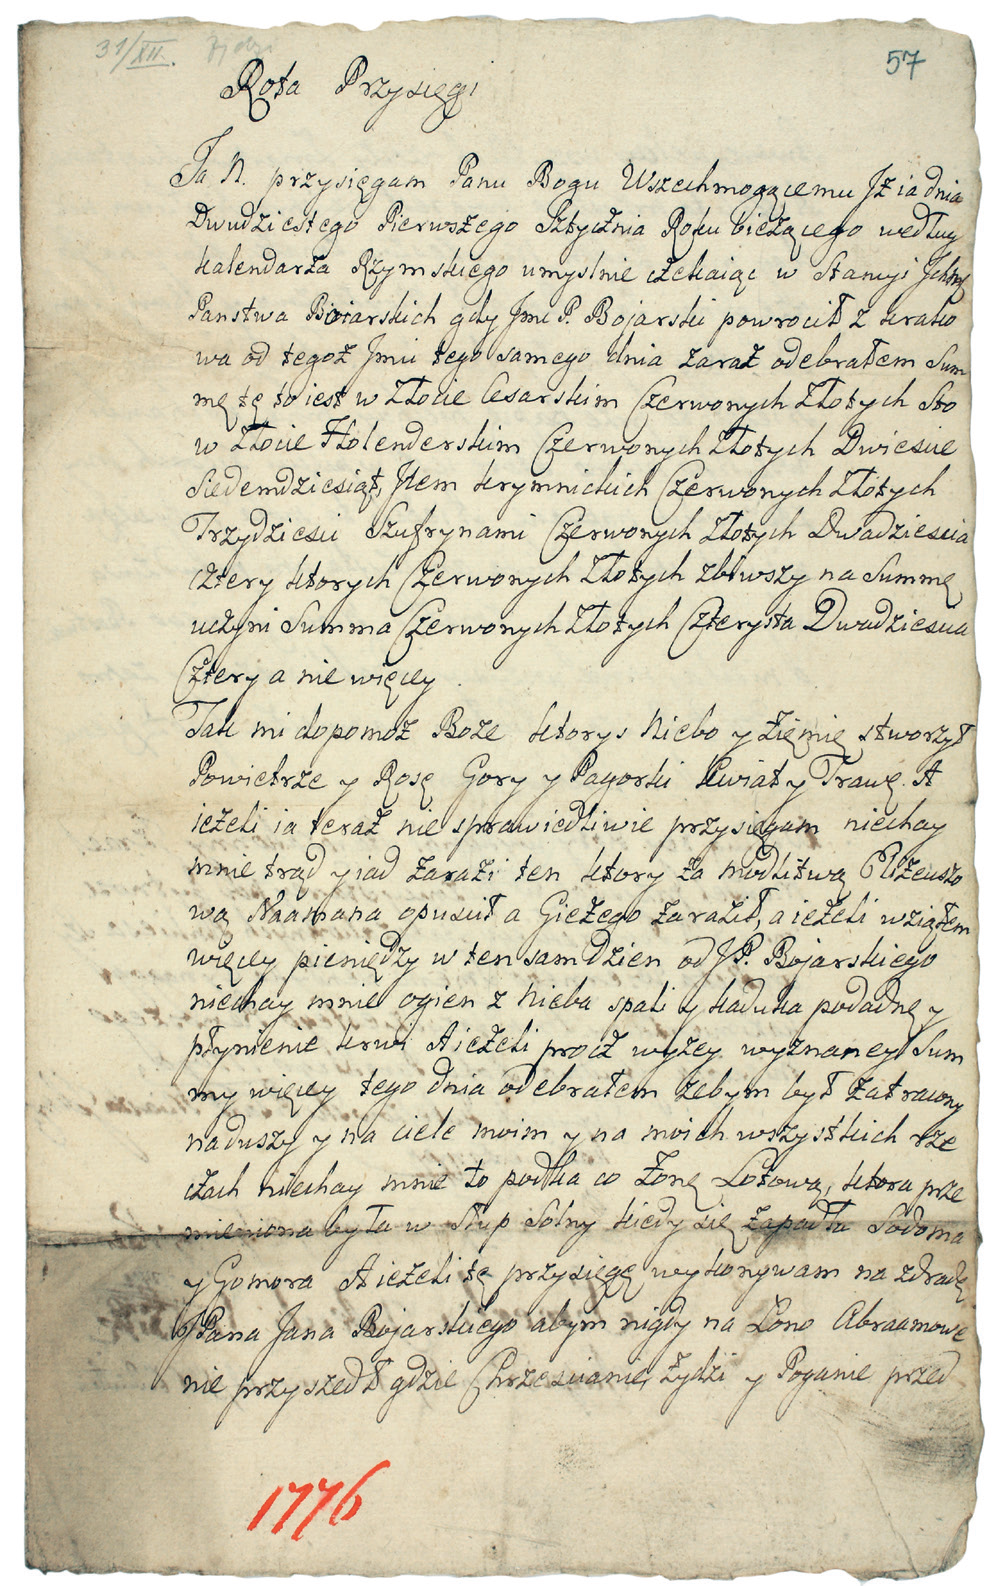 31/XII. Żydzi
57
Rota Przysięgi
Ja N. przysięgam Panu Bogu Wszechmogącemu Jż ia dnia
Dwudziestego Pierwszego Sztycznia Roku bieżącego według
kalendarza Rzymskiego umyslnie czekaiąc w Stancyi
Panstwa Boiarskich gdy Jmć P. Bojarski powrocił z Krako
wa od tegoż Jmci tego samego dnia zaraz odebrałem Sum
mę tę to iest w Złocie Cesarskim Czerwonych Złotych Sto
w Złocie Holenderskim Czerwonych Złotych Dwiescie
Siedemdziesiąt, Item Krymnickich Czerwonych Złotych
Trzydziesci Szufrynami Czerwonych Złotych Dwadziescia
cztery ktorych Czerwonych Złotych zbiwszy na Summę
uczyni Summa Czerwonych Złotych Czterysta Dwadziescia
Cztery a nie więcey.
Tak mi dopomoż Boże ktorys Niebo y Ziemię stworzył
Powietrze y Rosę Gory y Pagorki Kwiat y Trawę. A
ieżeli ia teraz nie sprawiedliwie przysięgam niechay
mnie trąd y iad zarazi ten ktory za modlitwą Elizeuszo
wą Naamana opuscił a Giezego zaraził, a ieżeli wziąłem
więcey pieniędzy w ten sam dzien od JP. Bojarskiego
niechay mnie ogien z Nieba spali y kaduka podadnę y
płynienie krwi A ieżeli procz wyżey wyznaney Sum
my więcey tego dnia odebrałem żebym był zatracony
na duszy y na ciele moim y na moich wszystkich rze
czach niechay mnie to podka co Żonę Lotową, ktora prze
mieniona była w Słup Solny kiedy się zapadła Sodoma
y Gomora A ieżeli tę przysięgę wykonywam na zdradę
JPana Jana Bojarskiego abym nigdy na Łono Abraamowe
nie przyszedł gdzie Chrzescianie, Żydzi y Poganie przed
1776